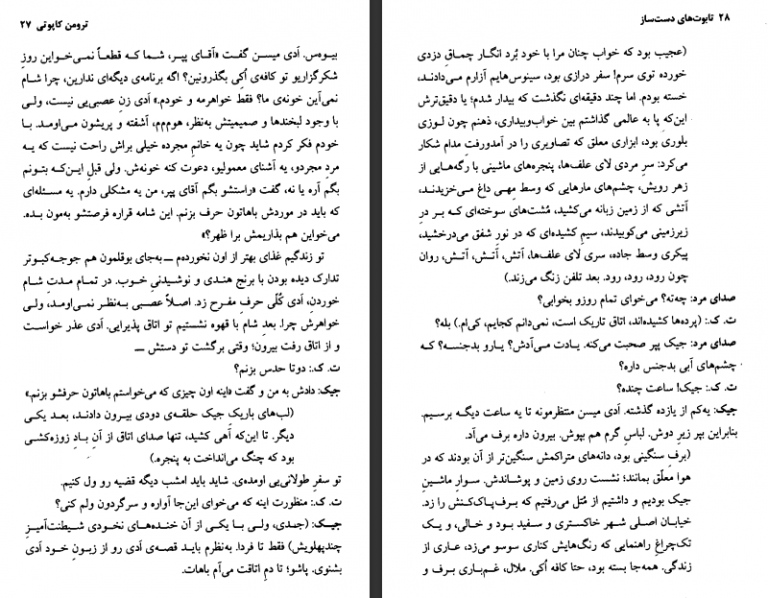 ترومن کاپوتی ۲۷
بیوه‌س. اَدی میسن گفت «آقای پپر، شما که قطعاً نمی‌خواین روزِ
شکرگزاریو تو کافه‌ی اُکی بگذرونین؟ اگه برنامه‌ی دیگه‌ای ندارین، چرا شام
نمی‌آین خونه‌ی ما؟ فقط خواهرمه و خودم.» اَدی زنِ عصبی‌یی نیست، ولی
با وجود لبخندها و صمیمیتش به‌نظر، هوم‌مم، آشفته و پریشون می‌اومد. با
خودم فکر کردم شاید چون یه خانمِ مجرده خیلی براش راحت نیست که یه
مردِ مجردو، یه آشنای معمولیو، دعوت کنه خونه‌ش. ولی قبلِ این‌که بتونم
بگم آره یا نه، گفت «راستشو بگم آقای پپر، من یه مشکلی دارم. یه مسئله‌ای
که باید در موردش باهاتون حرف بزنم. این شامه قراره فرصتشو به‌مون بده.
می‌خواین هم بذاریمش برا ظهر؟»
تو زندگیم غذای بهتر از اون نخورده‌م ـــ به‌جای بوقلمون هم جوجه‌کبوتر
تدارک دیده بودن با برنج هندی و نوشیدنیِ خوب. در تمام مدتِ شام
خوردن، اَدی کُلّی حرفِ مفرح زد. اصلاً عصبی به‌نظر نمی‌اومد، ولی
خواهرش چرا. بعدِ شام با قهوه نشستیم تو اتاق پذیرایی. اَدی عذر خواست
و از اتاق رفت بیرون؛ وقتی برگشت تو دستش ـــ
ت. ک.: دوتا حدس بزنم؟
جیک: دادش به من و گفت «اینه اون چیزی که می‌خواستم باهاتون حرفشو بزنم.»
(لب‌های باریک جیک حلقه‌ی دودی بیرون دادند، بعد یکی
دیگر. تا این‌که آهی کشید، تنها صدای اتاق از آنِ بادِ زوزه‌کشی
بود که چنگ می‌انداخت به پنجره.)
تو سفرِ طولانی‌یی اومده‌ی. شاید باید امشب دیگه قضیه رو ول کنیم.
ت. ک.: منظورت اینه که می‌خوای این‌جا آواره و سرگردون ولم کنی؟
جیک: (جدی، ولی با یکی از آن خنده‌های نخودی شیطنت‌آمیزِ
چندپهلویش) فقط تا فردا. به‌نظرم باید قصه‌ی اَدی رو از زبونِ خود اَدی
بشنوی. پاشو؛ تا دمِ اتاقت می‌آم باهات.
۲۸ تابوت‌های دست‌ساز
(عجیب بود که خواب چنان مرا با خود بُرد انگار چماقِ دزدی
خورده توی سرم! سفر درازی بود، سینوس‌هایم آزارم می‌دادند،
خسته بودم. اما چند دقیقه‌ای نگذشت که بیدار شدم؛ یا دقیق‌ترش
این‌که پا به عالمی گذاشتم بین خواب‌وبیداری، ذهنم چون لوزی
بلوری بود، ابزاری معلق که تصاویری را در آمدورفت مدام شکار
می‌کرد: سرِ مردی لای علف‌ها، پنجره‌های ماشینی با رگه‌هایی از
زهر رویش، چشم‌های مارهایی که وسط مِهی داغ می‌خزیدند،
آتشی که از زمین زبانه می‌کشید، مُشت‌های سوخته‌ای که بر درِ
زیرزمینی می‌کوبیدند، سیمِ کشیده‌ای که در نورِ شفق می‌درخشید،
پیکری وسط جاده، سری لای علف‌ها، آتش، آتش، آتش، روان
چون رود، رود، رود. بعد تلفن زنگ می‌زند.)
صدای مرد: چه‌ته؟ می‌خوای تمام روزو بخوابی؟
ت. ک.: (پرده‌ها کشیده‌اند، اتاق تاریک است، نمی‌دانم کجایم، کی‌ام.) بله؟
صدای مرد: جیک پپر صحبت می‌کنه. یادت می‌آدش؟ یارو بدجنسه؟ که
چشم‌های آبی بدجنس داره؟
ت. ک.: جیک! ساعت چنده؟
جیک: یه‌کم از یازده گذشته. اَدی میسن منتظرمونه تا یه ساعت دیگه برسیم.
بنابراین بپر زیرِ دوش. لباسِ گرم هم بپوش. بیرون داره برف می‌آد.
(برفِ سنگینی بود، دانه‌های متراکمش سنگین‌تر از آن بودند که در
هوا معلّق بمانند؛ نشست روی زمین و پوشاندش. سوارِ ماشینِ
جیک بودیم و داشتیم از مُتل می‌رفتیم که برف‌پاک‌کنش را زد.
خیابان اصلی شهر خاکستری و سفید بود و خالی، و یک
تک‌چراغِ راهنمایی که رنگ‌هایش کناری سوسو می‌زد، عاری از
زندگی. همه‌جا بسته بود، حتا کافه اُکی. ملال، غم‌باری برف و